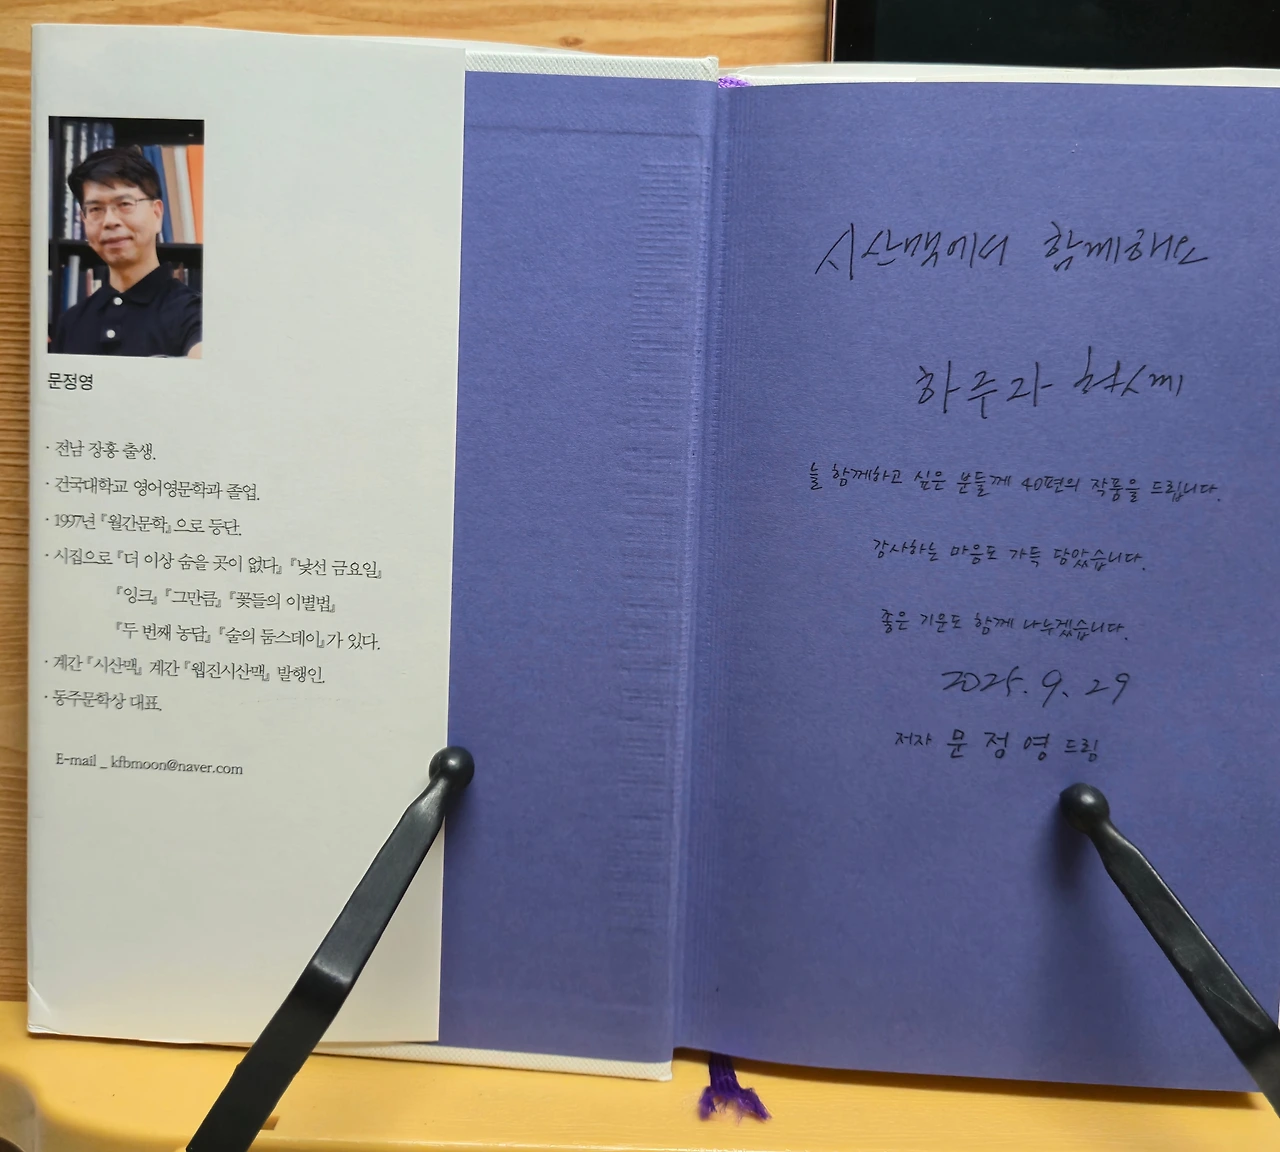 문정영
· 전남 장흥 출생.
· 건국대학교 영어영문학과 졸업.
· 1997년 『월간문학』으로 등단.
· 시집으로 『더 이상 숨을 곳이 없다』 『낯선 금요일』
『잉크』 『그만큼』 『꽃들의 이별법』
『두 번째 농담』 『술의 둠스데이』가 있다.
· 계간 『시산맥』 계간 『웹진시산맥』 발행인.
· 동주문학상 대표.
E-mail _ kfbmoon@naver.com
시산맥에서 함께해요
늘 함께하고 싶은 분들께 40편의 작품을 드립니다.
감사하는 마음도 가득 담았습니다.
좋은 기운도 함께 나누겠습니다.
2025. 9. 29
저자 문정영 드림